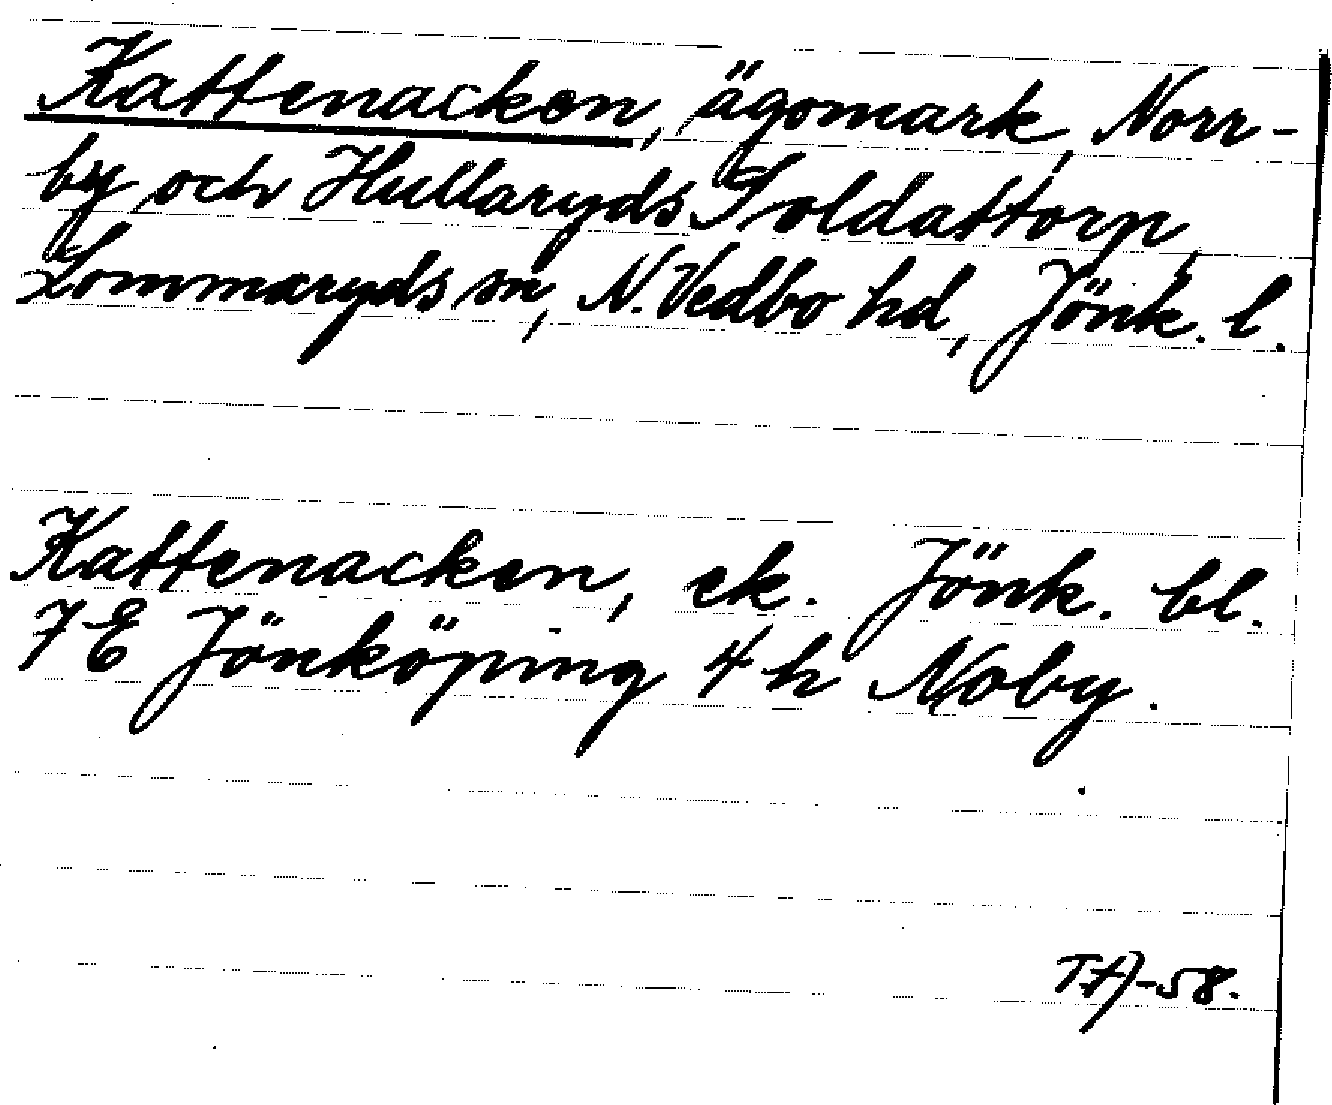 Kattenacken, ägomark, Norr-
by och Hullaryds Soldattorp,
Lommaryds sn, N. Vedbo hd, Jönk. l.
Kattenacken, ek. Jönk. bl.
7E Jönköping 4h Noby.